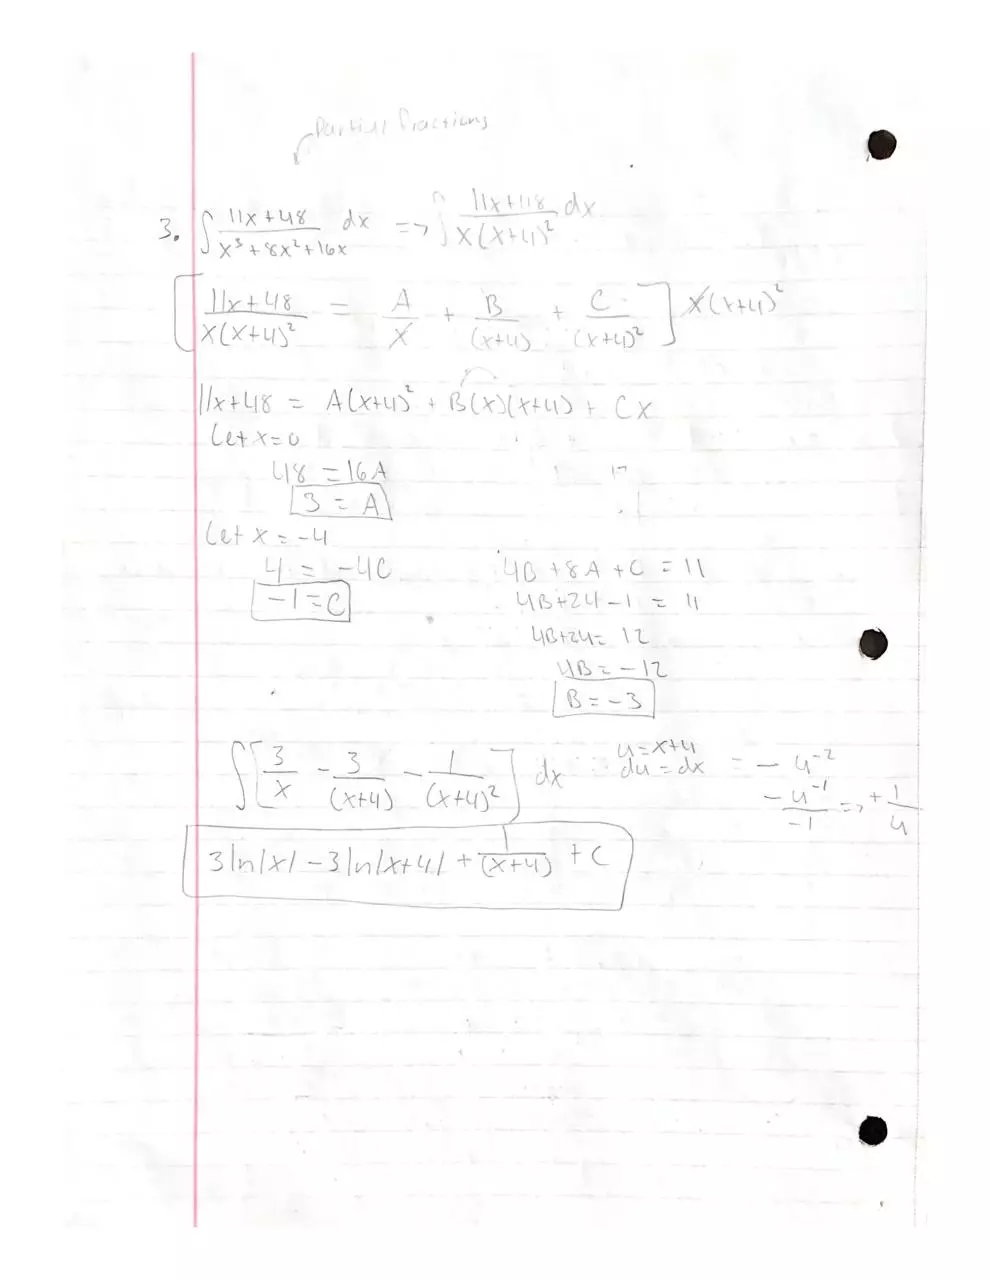 Partial fractions
3. ∫ 11x+48 / x³+8x²+16x dx => ∫ 11x+48 / x(x+4)² dx
[ 11x+48 / x(x+4)² = A / x + B / (x+4) + C / (x+4)² ] x(x+4)²
11x+48 = A(x+4)² + B(x)(x+4) + Cx
Let x=0
48 = 16A
3 = A
Let x = -4
4 = -4C
-1 = C
4B +8A +C = 11
4B+24 -1 = 11
4B+24= 12
4B= -12
B= -3
∫ [ 3 / x - 3 / (x+4) - 1 / (x+4)² ] dx
u=x+4
du=dx
= - u⁻²
- u⁻¹ / -1 => + 1 / u
3 ln|x| - 3 ln|x+4| + 1 / (x+4) + C